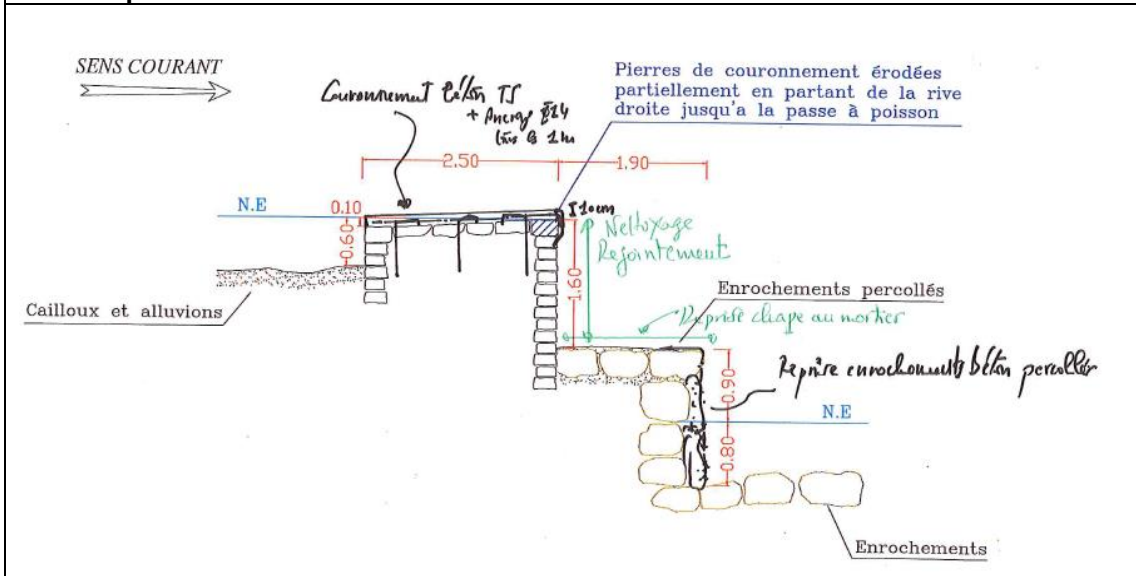 SENS COURANT
Couronnement béton TS
+ Ancrage
1m
Pierres de couronnement érodées
partiellement en partant de la rive
droite jusqu'a la passe à poisson
2.50
1.90
N.E
0.10
0.60
10cm
Nettoyage
Rejointement
1.60
Cailloux et alluvions
Enrochements percollés
Reprise chape au mortier
Reprise enrochements béton percollés
0.90
N.E
0.80
Enrochements